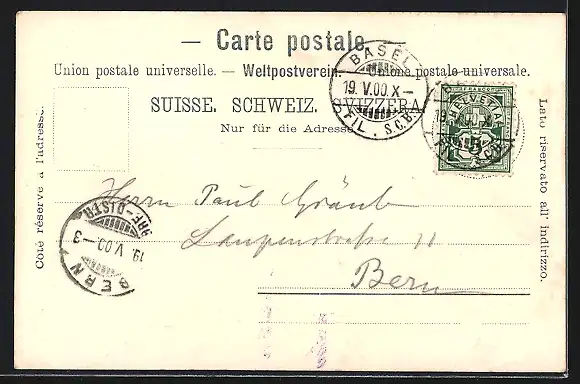 — Carte postale. —
Union postale universelle. — Weltpostverein. — Unione postale universale.
SUISSE. SCHWEIZ. SVIZZERA.
Nur für die Adresse.
Côté réservé à l'adresse.
Lato riservato all' indirizzo.
BASEL
19. V. 00. X—
FIL. S.C.B.
FRANCO
HELVETIA
5
Herrn Paul Gräub
Laupenstrasse 11
Bern
BRF-DISTR.
19. V. 00.—3
BERN